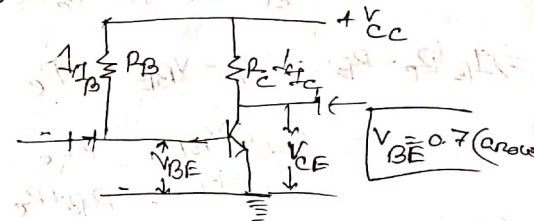 +V_CC
I_B R_B R_C I_C
V_BE V_CE V_BE = 0.7